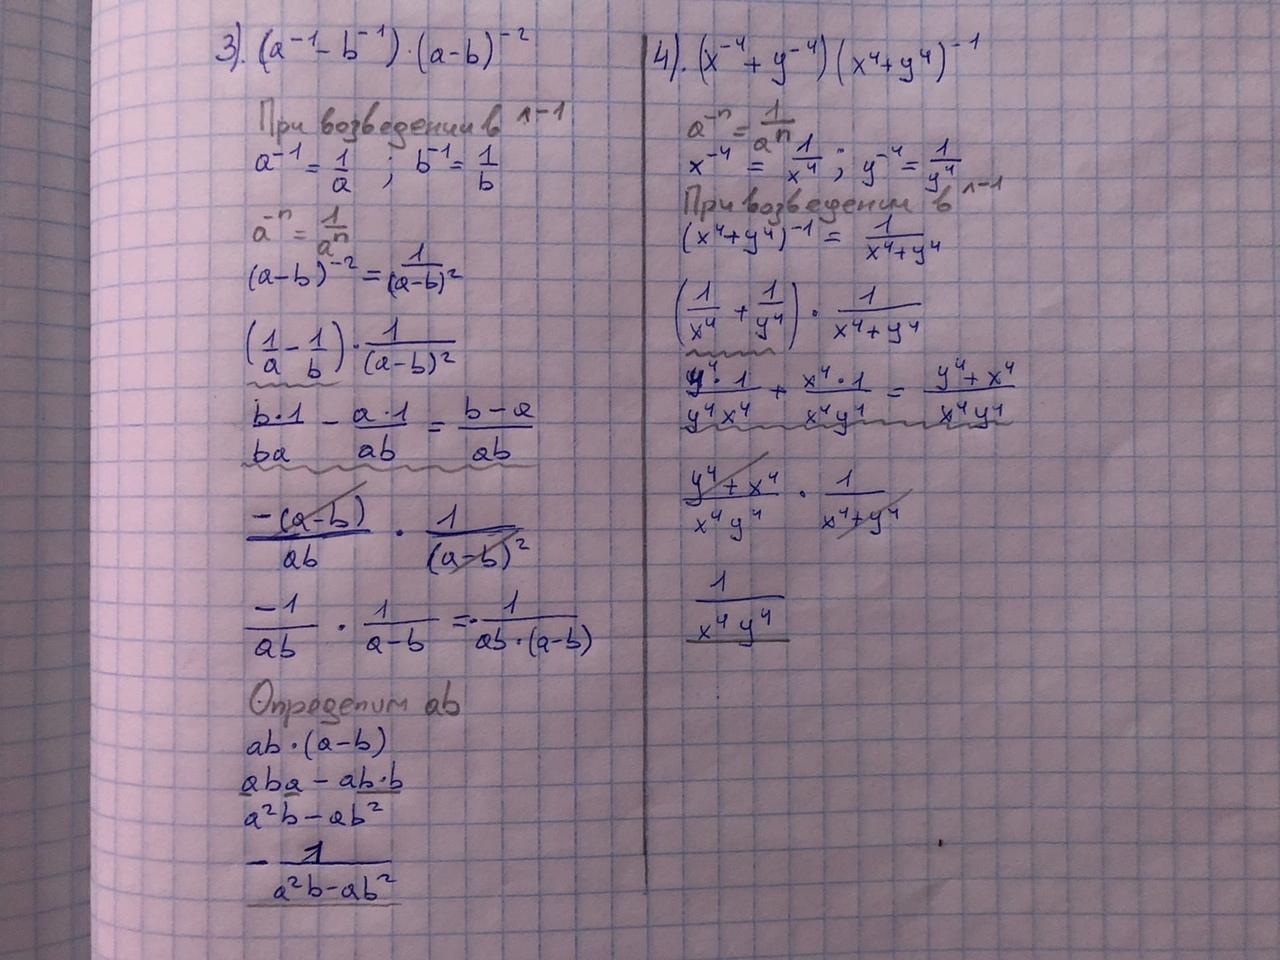 3). (a⁻¹ - b⁻¹) · (a-b)⁻²
При возведении в n-1
a⁻¹ = 1/a ; b⁻¹ = 1/b
a⁻ⁿ = 1/aⁿ
(a-b)⁻² = 1/(a-b)²
(1/a - 1/b) · 1/(a-b)²
b·1/ba - a·1/ab = b-a/ab
-(a-b)/ab · 1/(a-b)²
-1/ab · 1/a-b = - 1/ab·(a-b)
Определим ab
ab · (a-b)
aba - ab·b
a²b - ab²
- 1/a²b-ab²
4). (x⁻⁴ + y⁻⁴) (x⁴+y⁴)⁻¹
a⁻ⁿ = 1/aⁿ
x⁻⁴ = 1/x⁴ ; y⁻⁴ = 1/y⁴
При возведении в n-1
(x⁴+y⁴)⁻¹ = 1/x⁴+y⁴
(1/x⁴ + 1/y⁴) · 1/x⁴+y⁴
y⁴·1/y⁴x⁴ + x⁴·1/x⁴y⁴ = y⁴+x⁴/x⁴y⁴
y⁴+x⁴/x⁴y⁴ · 1/x⁴+y⁴
1/x⁴y⁴